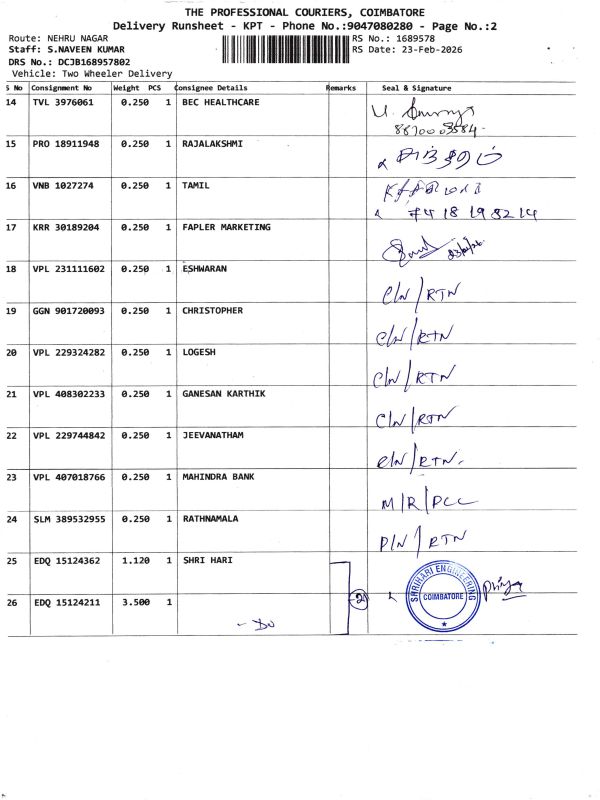 THE PROFESSIONAL COURIERS, COIMBATORE
Delivery Runsheet - KPT - Phone No.:9047080280 - Page No.:2
Route: NEHRU NAGAR
RS No.: 1689578
Staff: S.NAVEEN KUMAR
RS Date: 23-Feb-2026
DRS No.: DCJB168957802
Vehicle: Two Wheeler Delivery
S No Consignment No Weight PCS Consignee Details Remarks Seal & Signature
14 TVL 3976061 0.250 1 BEC HEALTHCARE
15 PRO 18911948 0.250 1 RAJALAKSHMI
16 VNB 1027274 0.250 1 TAMIL
17 KRR 30189204 0.250 1 FAPLER MARKETING
18 VPL 231111602 0.250 1 ESHWARAN C/N/RTN
19 GGN 901720093 0.250 1 CHRISTOPHER C/N/RTN
20 VPL 229324282 0.250 1 LOGESH C/N/RTN
21 VPL 408302233 0.250 1 GANESAN KARTHIK C/N/RTN
22 VPL 229744842 0.250 1 JEEVANATHAM C/N/RTN
23 VPL 407018766 0.250 1 MAHINDRA BANK M/R/PCC
24 SLM 389532955 0.250 1 RATHNAMALA P/N/RTN
25 EDQ 15124362 1.120 1 SHRI HARI SHRIHARI ENGINEERING COIMBATORE
26 EDQ 15124211 3.500 1 - Do 2